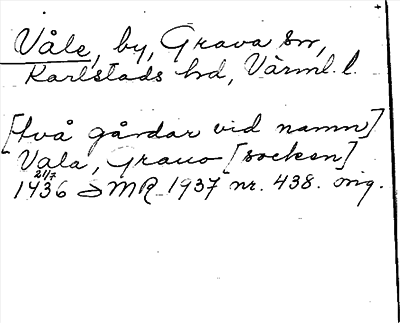 Våle, by, Grava sn,
Karlstads hd, Värml. l.
[två gårdar vid namn]
Vala, Grauo [socken]
21/7
1436 SMR 1937 nr. 438. orig.